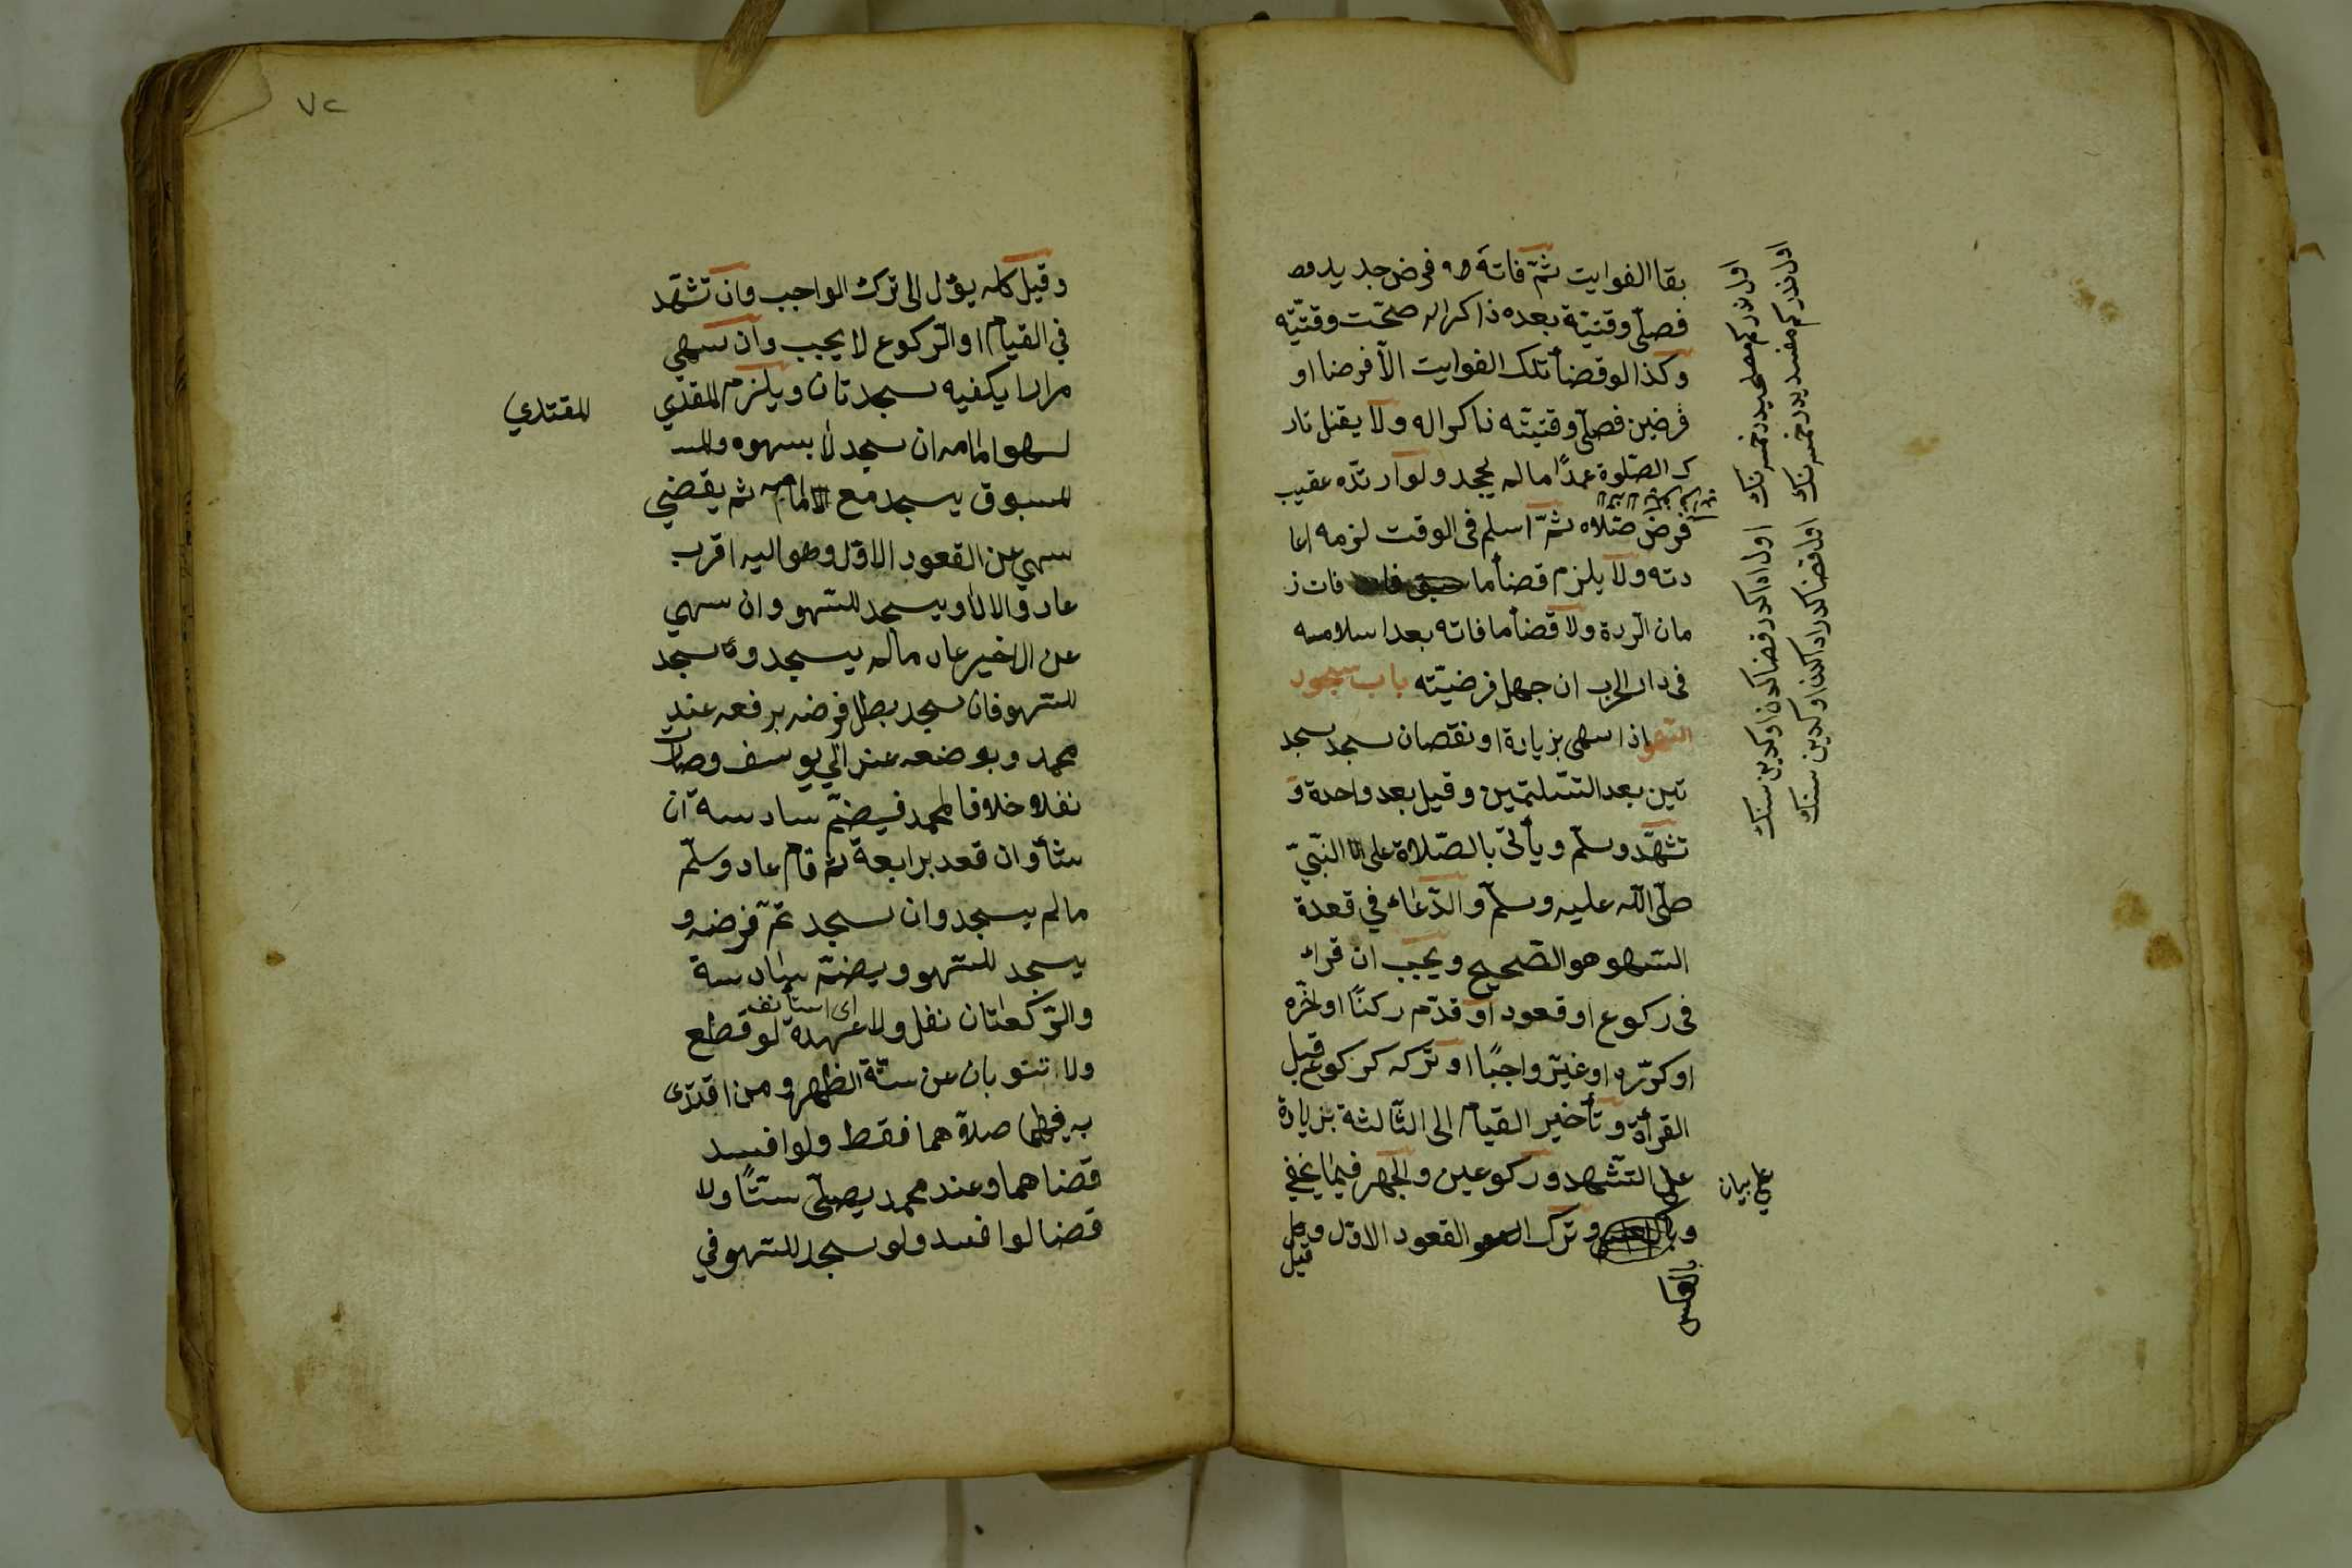 بقا الفوايت ثمّ فاتة فرض جديد
فصلّى وقتيّة بعده ذاكرا له صحّت وقتيّه
وكذا لو قضأ تلك الفوايت الّا فرضا او
فرضين فصلّى وقتيّته ذاكرا له ولا يقتل تار
ك الصّلوة عمدًا ما لم يجحد ولو ارتدّه عقيب
فرض صّلاه ثمّ اسلم فى الوقت لزمه اعا
دته ولا يلزم قضأ ما فات ز
مان الرّدة ولا قضأ ما فاته بعد اسلامه
فى دار الحرب ان جهل فرضيّته باب سجود
السّهو اذا سهى بزيادة او نقصان سجد سجد
تين بعد التّسليمّين وقيل بعد واحدة و
تشهّد وسلّم ويأتى بالصّلاة على النّبىّ
صلّى اللّه عليه وسلّم والدّعاء في قعدة
السّهو هو الصّحيح ويجب ان قراء
فى ركوع او قعود او قدّم ركنًا او اخّره
او كرّره او غيّر واجبًا او تركه كركوع قبل
القرأة وتأخير القيام الى الثّالثة بزيادة
على التّشهد وركوعين والجهر فيما يخفي
على بيان
و وترك القعود الاوّل و
قيل
بالعكس
٧٢
وقيل كله يؤل الى ترك الواجب وان تشهّد
في القيام او الرّكوع لا يجب وان سهي
مرارا يكفيه سجدتان ويلزم المقدي
المقتدي
لسهو امامه ان سجد لا بسهوه والمسـ
المسبوق يسجد مع الامام ثم يقضي
سهي عن القعود الاوّل وهو اليه اقرب
عاد والا لا ويسجد للسّهو وان سهي
عن الاخير عاد ما لم يسجد و سجد
للسّهو فان سجد بطل فرضه برفعه عند
محمد وبوضعه عند ابي يوسف وصار
نفلا خلافا لمحمد فيضمّ سادسة ان
شأ وان قعد برابعة ثم قام عاد وسلّم
ما لم يسجد وان سجد تمّ فرضه و
يسجد للسّهو ويضمّ سادسة
اى استأنف
والرّكعتان نفل ولا عهدة لو قطع
ولا تنوبان عن سنّة الظهر ومن اقتدى
به فيهما صلّاهما فقط ولو افسد
قضاهما وعند محمد يصلّى ستًّا ولا
قضا لو افسد ولو سجد للسّهو في